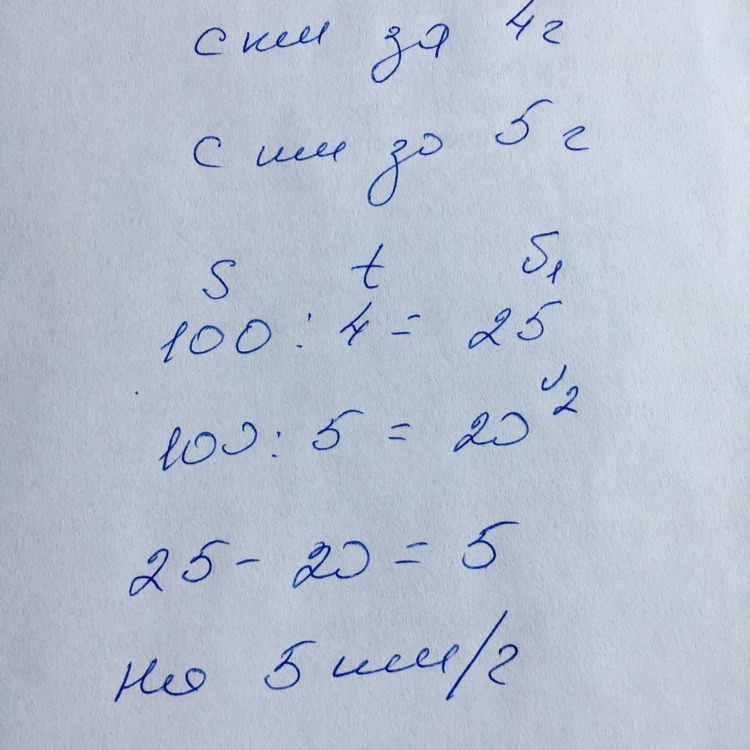 с км за 4 г
с км за 5 г
S t S₁
100 : 4 = 25
υ₂
100 : 5 = 20
25 - 20 = 5
на 5 км/г